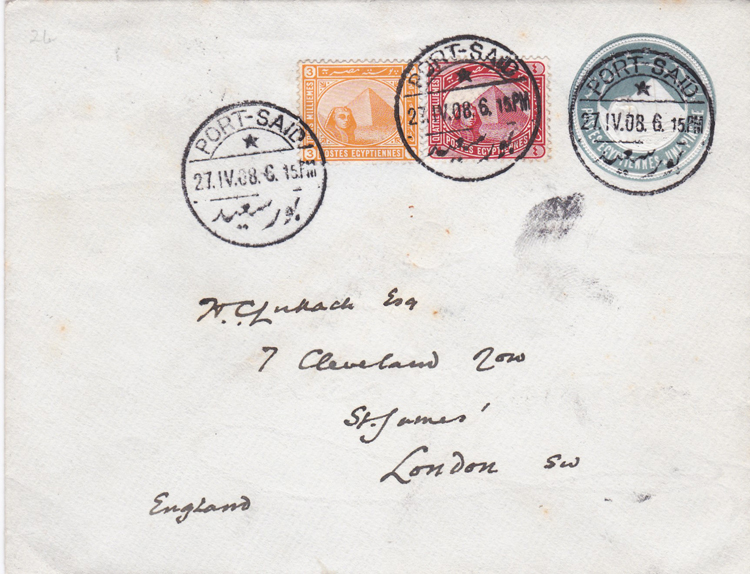 26
PORT-SAID
27.IV.08.6.15PM
بور سعيد
3 3
MILLIEMES
POSTES EGYPTIENNES
PORT-SAID
27.IV.08.6.15PM
بور سعيد
POSTES EGYPTIENNES
PORT-SAID
27.IV.08.6.15PM
بور سعيد
H. C. Lukach Esq
7 Cleveland Row
St. James'
London SW
England